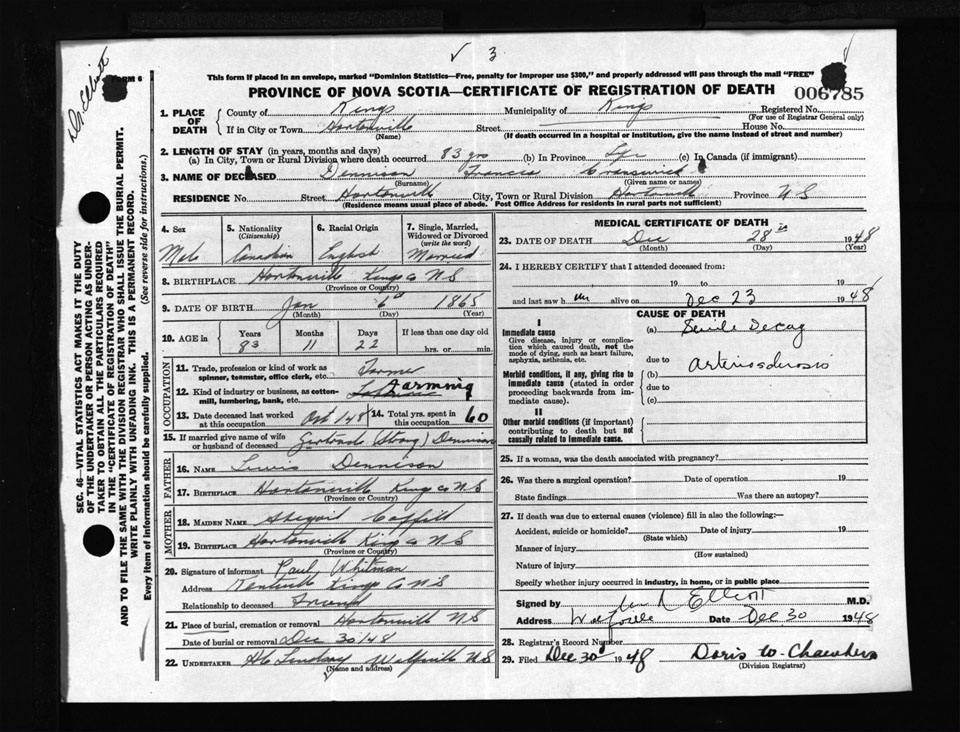 3
Dr. Elliott
FORM 6
This form if placed in an envelope, marked "Dominion Statistics—Free, penalty for improper use $300," and properly addressed will pass through the mail "FREE"
PROVINCE OF NOVA SCOTIA—CERTIFICATE OF REGISTRATION OF DEATH 006785
1. PLACE OF DEATH
County of Kings Municipality of Kings Registered No.
(For use of Registrar General only)
If in City or Town Hortonville Street House No.
(Name) (If death occurred in a hospital or institution, give the name instead of street and number)
2. LENGTH OF STAY (in years, months and days)
(a) In City, Town or Rural Division where death occurred 83 yrs (b) In Province (c) In Canada (if immigrant)
3. NAME OF DECEASED Dennison Francis
(Surname) (Given name or names)
RESIDENCE No. Street Hortonville City, Town or Rural Division Hortonville Province N S
(Residence means usual place of abode. Post Office Address for residents in rural parts not sufficient)
4. Sex 5. Nationality (Citizenship) 6. Racial Origin 7. Single, Married, Widowed or Divorced (write the word)
Male Canadian English Married
8. BIRTHPLACE Hortonville Kings Co N S
(Province or Country)
9. DATE OF BIRTH Jan 6th 1865
(Month) (Day) (Year)
10. AGE in Years Months Days If less than one day old
83 11 22 hrs. or min.
OCCUPATION
11. Trade, profession or kind of work as spinner, teamster, office clerk, etc. Farmer
12. Kind of industry or business, as cotton-mill, lumbering, bank, etc. Farming
13. Date deceased last worked at this occupation Oct 1948 14. Total yrs. spent in 60
15. If married give name of wife or husband of deceased Gertrude (Strong) Dennison
FATHER
16. NAME Lewis Dennison
17. BIRTHPLACE Hortonville Kings Co N S
(Province or Country)
MOTHER
18. MAIDEN NAME Abigail
19. BIRTHPLACE Hortonville Kings Co N S
(Province or Country)
20. Signature of informant Paul Whitman
Address Kentville Kings Co N S
Relationship to deceased Friend
21. Place of burial, cremation or removal Hortonville N S
Date of burial or removal Dec 30/48
22. UNDERTAKER Lindsay Wolfville N S
(Name and address)
MEDICAL CERTIFICATE OF DEATH
23. DATE OF DEATH Dec 28th 1948
(Month) (Day) (Year)
24. I HEREBY CERTIFY that I attended deceased from:
19 to 19
and last saw h im alive on Dec 23 1948
CAUSE OF DEATH
I
Immediate cause (a) Senile Decay
Give disease, injury or complication which caused death, not the mode of dying, such as heart failure, asphyxia, asthenia, etc.
due to Arteriosclerosis
Morbid conditions, if any, giving rise to immediate cause (stated in order proceeding backwards from immediate cause).
(b)
due to
(c)
II
Other morbid conditions (if important) contributing to death but not causally related to immediate cause.
25. If a woman, was the death associated with pregnancy?
26. Was there a surgical operation? Date of operation 19
State findings Was there an autopsy?
27. If death was due to external causes (violence) fill in also the following:—
Accident, suicide or homicide? Date of injury 19
(State which)
Manner of injury
(How sustained)
Nature of injury
Specify whether injury occurred in industry, in home, or in public place
Signed by Elliott M.D.
Address Wolfville Date Dec 30 1948
28. Registrar's Record Number
29. Filed Dec 30 1948 Doris W. Chambers
(Division Registrar)
SEC. 46—VITAL STATISTICS ACT MAKES IT THE DUTY
OF THE UNDERTAKER OR PERSON ACTING AS UNDER-
TAKER TO OBTAIN ALL THE PARTICULARS REQUIRED
IN THE "CERTIFICATE OF REGISTRATION OF DEATH"
AND TO FILE THE SAME WITH THE DIVISION REGISTRAR WHO SHALL ISSUE THE BURIAL PERMIT.
WRITE PLAINLY WITH UNFADING INK. THIS IS A PERMANENT RECORD.
Every item of information should be carefully supplied. (See reverse side for instructions.)